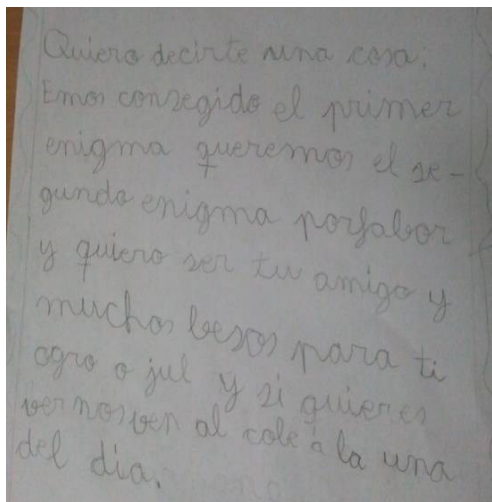 Quiero decirte una cosa.
Emos consegido el primer
enigma queremos el se-
gundo enigma porfabor
y quiero ser tu amigo y
muchos besos para ti
ogro o jul y si quieres
vernos ven al cole a la una
del dia.